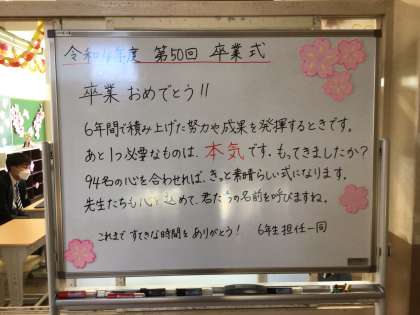 令和4年度 第50回 卒業式
卒業 おめでとう!!
6年間で積み上げた努力や成果を発揮するときです。
あと1つ必要なものは、本気です。もってきましたか？
94名の心を合わせれば、きっと素晴らしい式になります。
先生たちも心を込めて、君たちの名前を呼びますね。
これまで すてきな時間を ありがとう！ 6年生 担任一同